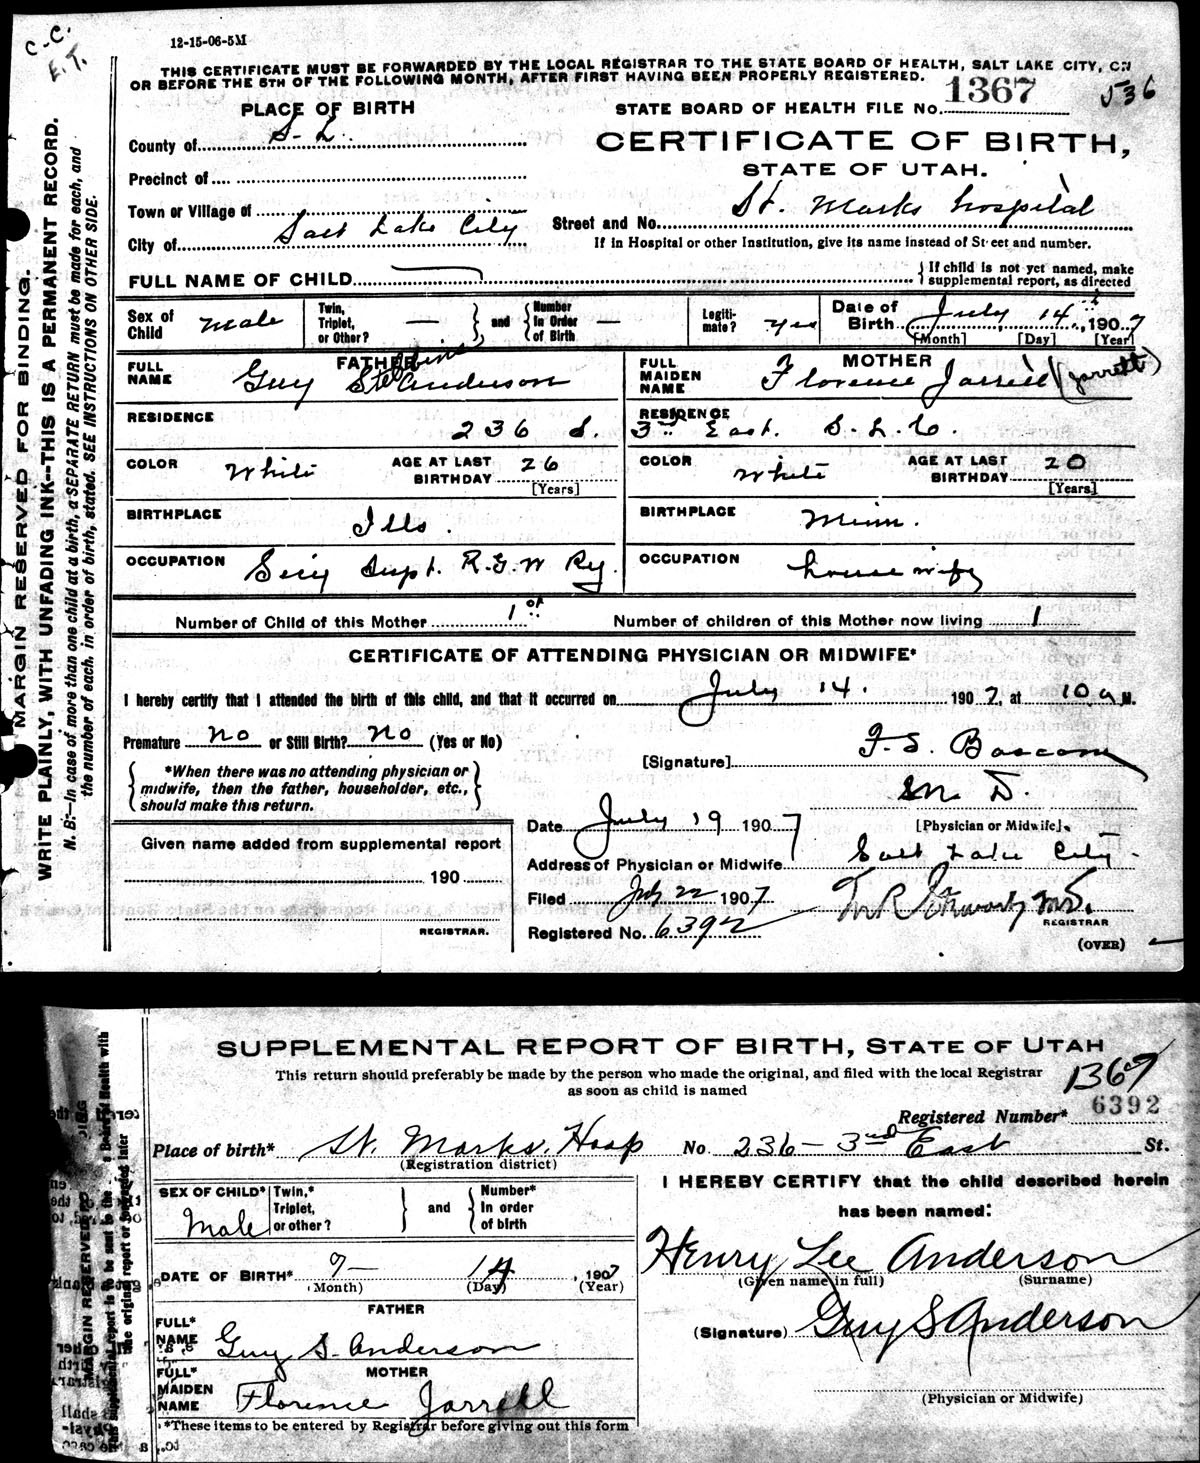 C.-C.
E.T.
12-15-06-5M
THIS CERTIFICATE MUST BE FORWARDED BY THE LOCAL REGISTRAR TO THE STATE BOARD OF HEALTH, SALT LAKE CITY, ON
OR BEFORE THE 5TH OF THE FOLLOWING MONTH, AFTER FIRST HAVING BEEN PROPERLY REGISTERED.
PLACE OF BIRTH
STATE BOARD OF HEALTH FILE No. 1367 536
County of S. L.
CERTIFICATE OF BIRTH,
STATE OF UTAH.
Precinct of
Town or Village of
City of Salt Lake City
Street and No. St. Marks hospital
If in Hospital or other Institution, give its name instead of Street and number.
FULL NAME OF CHILD
If child is not yet named, make
supplemental report, as directed
Sex of Child Male
Twin, Triplet, or Other? —
and
Number In Order of Birth —
Legiti-mate? yes
Date of Birth July 14, 1907
[Month] [Day] [Year]
FATHER
FULL NAME Guy Stebbins Anderson
MOTHER
FULL MAIDEN NAME Florence Jarrell (Jarrett)
RESIDENCE 236 S.
RESIDENCE 3rd East. S.L.C.
COLOR White
AGE AT LAST BIRTHDAY 26
[Years]
COLOR White
AGE AT LAST BIRTHDAY 20
[Years]
BIRTHPLACE Ills.
BIRTHPLACE Minn.
OCCUPATION Supt. R.G.W Ry.
OCCUPATION housewife
Number of Child of this Mother 1st
Number of children of this Mother now living 1
CERTIFICATE OF ATTENDING PHYSICIAN OR MIDWIFE*
I hereby certify that I attended the birth of this child, and that it occurred on July 14. 1907, at 10 a M.
Premature no or Still Birth? no (Yes or No)
*When there was no attending physician or
midwife, then the father, householder, etc.,
should make this return.
[Signature] F. S. Bascom
M D.
[Physician or Midwife].
Given name added from supplemental report
190
REGISTRAR.
Date July 19 1907
Address of Physician or Midwife Salt Lake City.
Filed July 22 1907
REGISTRAR
Registered No. 6392
(OVER)
MARGIN RESERVED FOR BINDING.
WRITE PLAINLY, WITH UNFADING INK--THIS IS A PERMANENT RECORD.
N. B:—In case of more than one child at a birth, a SEPARATE RETURN must be made for each, and
the number of each, in order of birth, stated. SEE INSTRUCTIONS ON OTHER SIDE.
SUPPLEMENTAL REPORT OF BIRTH, STATE OF UTAH
This return should preferably be made by the person who made the original, and filed with the local Registrar
as soon as child is named
1367
Registered Number* 6392
Place of birth* St. Marks. Hosp No. 236 - 3rd East St.
(Registration district)
SEX OF CHILD* Male
Twin,* Triplet, or other?
and
Number* In order of birth
I HEREBY CERTIFY that the child described herein
has been named:
Henry Lee Anderson
(Given name in full) (Surname)
DATE OF BIRTH* 7- 14, 1907
(Month) (Day) (Year)
(Signature) Guy S Anderson
FATHER
FULL* NAME Guy S. Anderson
MOTHER
FULL* MAIDEN NAME Florence Jarrell
(Physician or Midwife)
*These items to be entered by Registrar before giving out this form